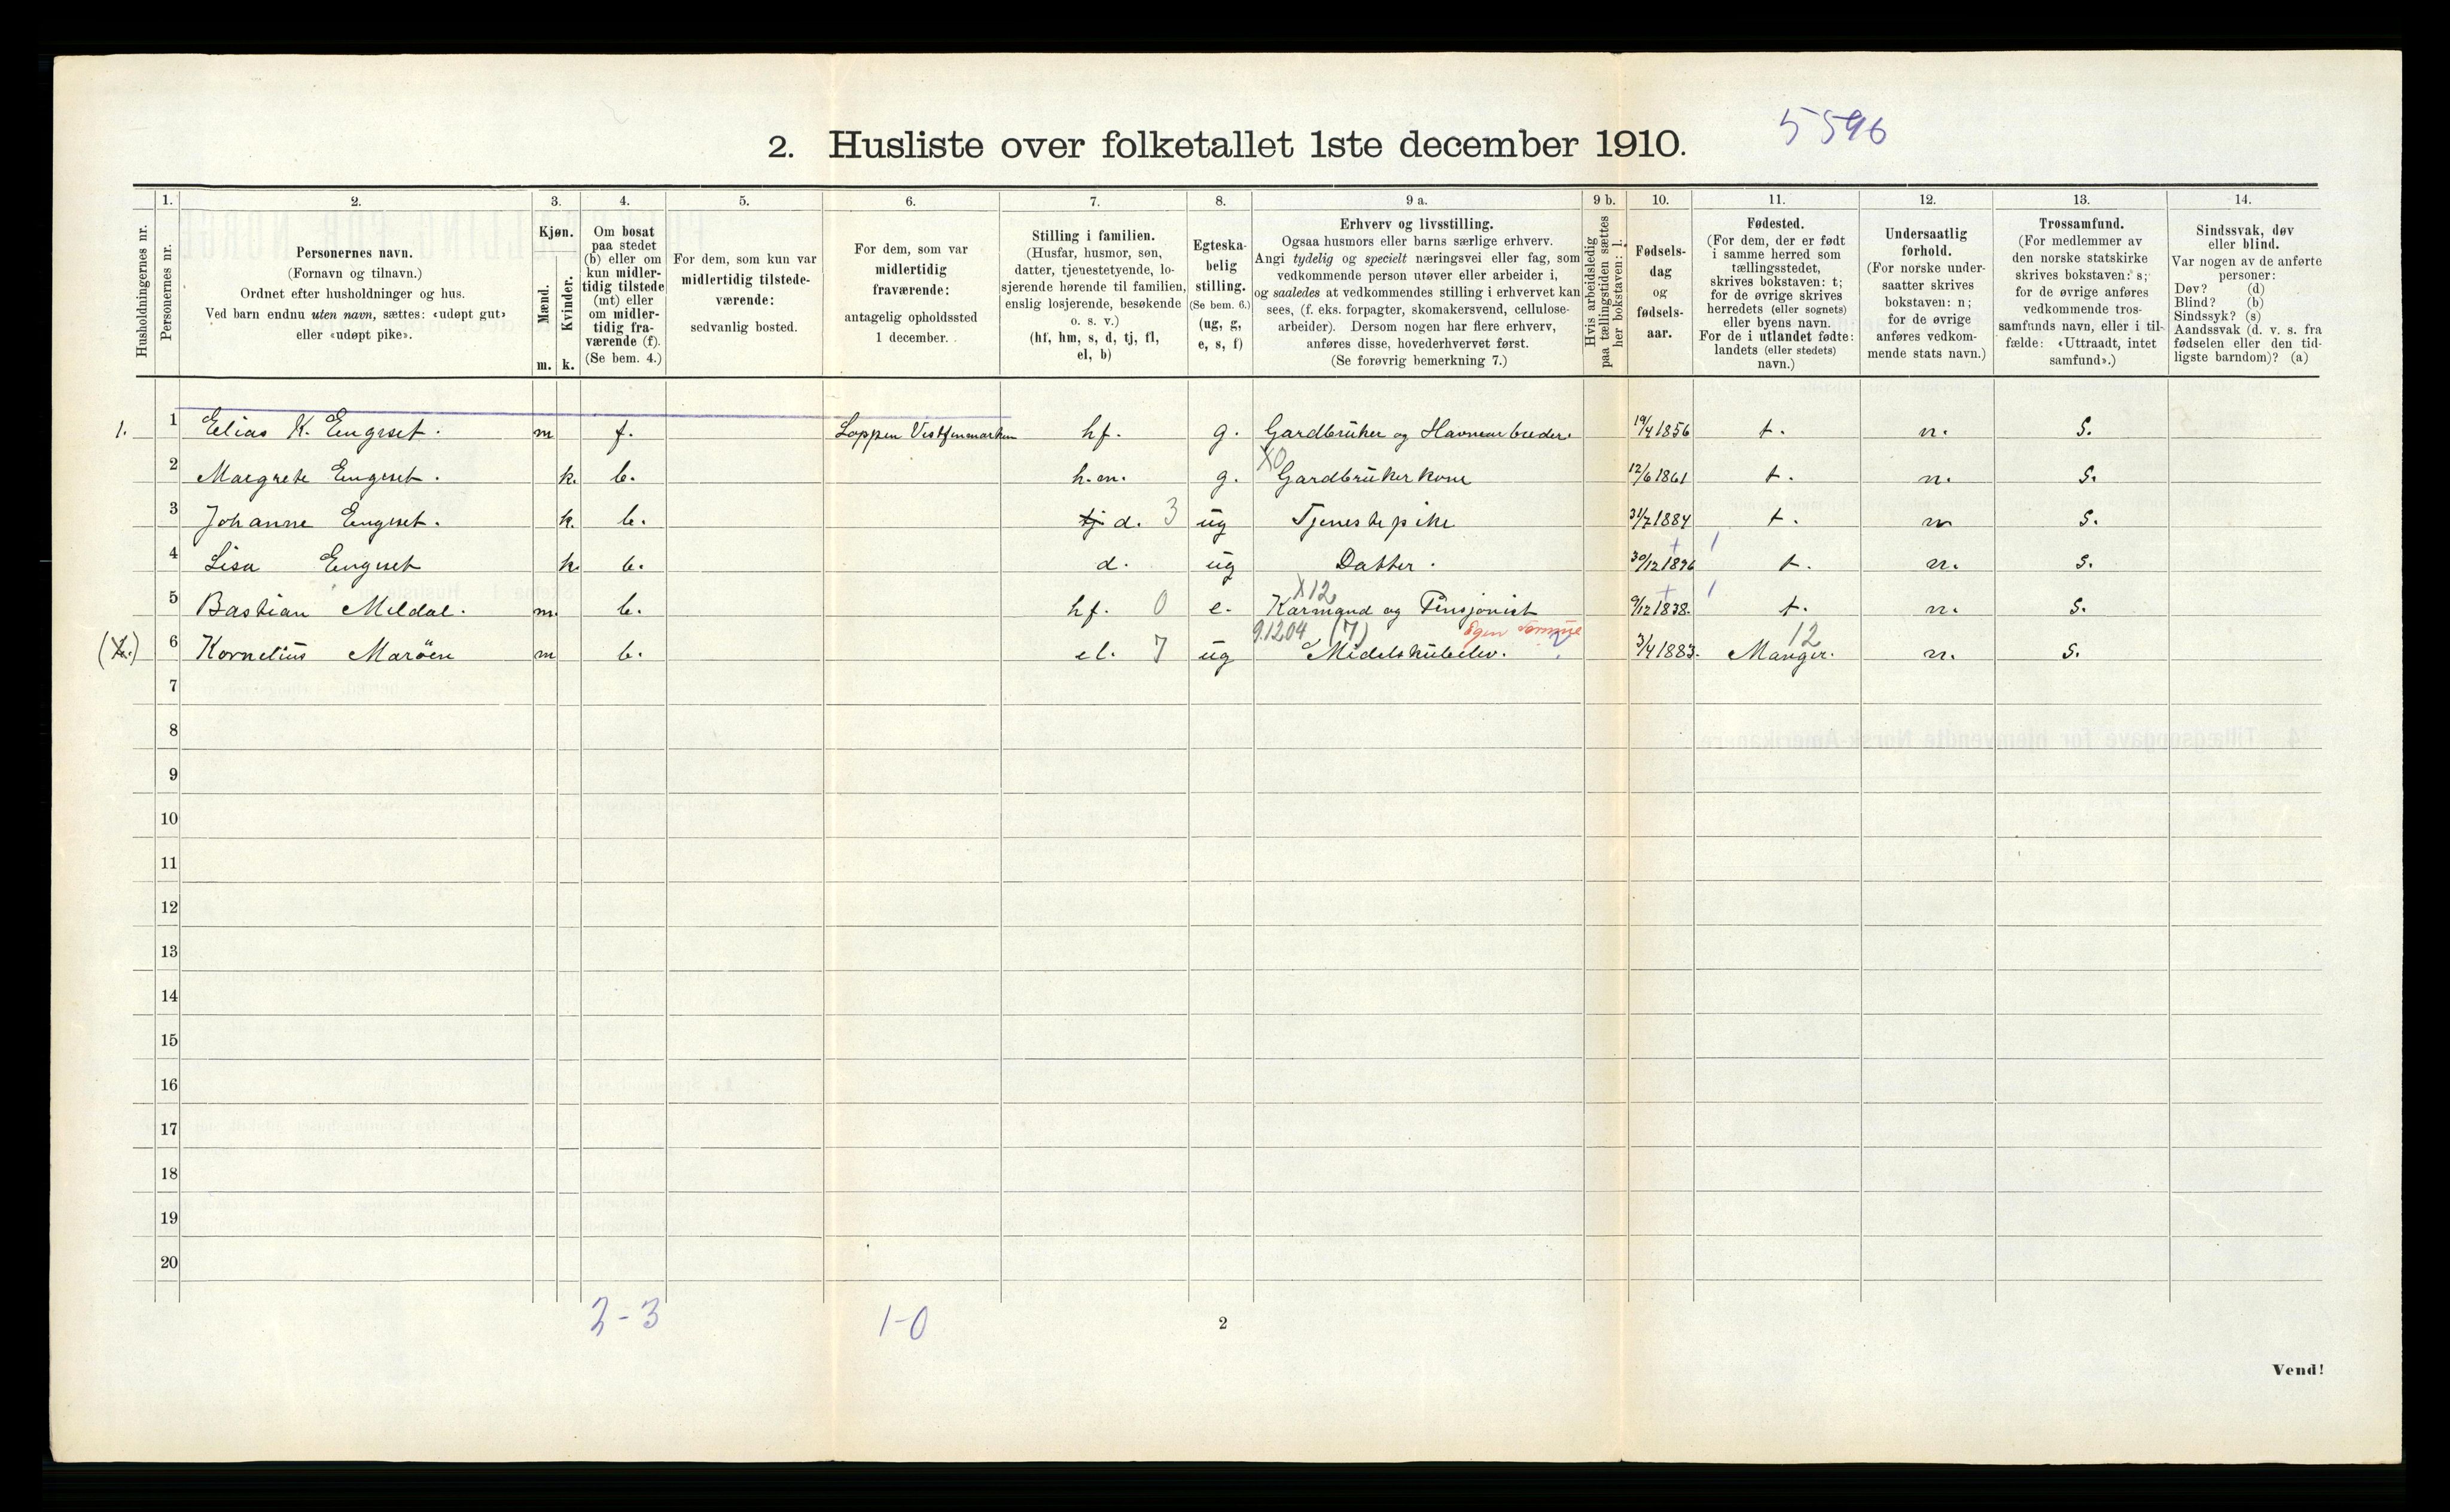 2. Husliste over folketallet 1ste december 1910.
5596
Husholdningernes nr.
1.
Personernes nr.
2.
Personernes navn.
(Fornavn og tilnavn.)
Ordnet efter husholdninger og hus.
Ved barn endnu uten navn, sættes: «udøpt gut»
eller «udøpt pike».
3.
Kjøn.
Mænd.
Kvinder.
m. k.
4.
Om bosat
paa stedet
(b) eller om
kun midler-
tidig tilstede
(mt) eller
om midler-
tidig fra-
værende (f).
(Se bem. 4.)
5.
For dem, som kun var
midlertidig tilstede-
værende:
sedvanlig bosted.
6.
For dem, som var
midlertidig
fraværende:
antagelig opholdssted
1 december.
7.
Stilling i familien.
(Husfar, husmor, søn,
datter, tjenestetyende, lo-
sjerende hørende til familien,
enslig losjerende, besøkende
o. s. v.)
(hf, hm, s, d, tj, fl,
el, b)
8.
Egteska-
belig
stilling.
(Se bem. 6.)
(ug, g,
e, s, f)
9 a.
Erhverv og livsstilling.
Ogsaa husmors eller barns særlige erhverv.
Angi tydelig og specielt næringsvei eller fag, som
vedkommende person utøver eller arbeider i,
og saaledes at vedkommendes stilling i erhvervet kan
sees, (f. eks. forpagter, skomakersvend, cellulose-
arbeider). Dersom nogen har flere erhverv,
anføres disse, hovederhvervet først.
(Se forøvrig bemerkning 7.)
9 b.
Hvis arbeidsledig
paa tællingstiden sættes
her bokstaven: l.
10.
Fødsels-
dag
og
fødsels-
aar.
11.
Fødested.
(For dem, der er født
i samme herred som
tællingsstedet,
skrives bokstaven: t;
for de øvrige skrives
herredets (eller sognets)
eller byens navn.
For de i utlandet fødte:
landets (eller stedets)
navn.)
12.
Undersaatlig
forhold.
(For norske under-
saatter skrives
bokstaven: n;
for de øvrige
anføres vedkom-
mende stats navn.)
13.
Trossamfund.
(For medlemmer av
den norske statskirke
skrives bokstaven: s;
for de øvrige anføres
vedkommende tros-
samfunds navn, eller i til-
fælde: «Uttraadt, intet
samfund».)
14.
Sindssvak, døv
eller blind.
Var nogen av de anførte
personer:
Døv? (d)
Blind? (b)
Sindssyk? (s)
Aandssvak (d. v. s. fra
fødselen eller den tid-
ligste barndom)? (a)
1. 1 Elias K. Engeset. m f. Loppen Vestfinmarken hf. g. Gardbruker og Havnearbeider 19/4 1856 t. n. S.
X0
2 Margrete Engeset. k. b. h.m. g. Gardbrukerkone 12/6 1861 t. n. S.
3 Johanne Engeset. k. b. tj d. 3 ug Tjenestepike 31/7 1884 t. n S.
4 Lisa Engeset k. b. d. ug Datter. 30/12 1896 t. n. S.
X12
5 Bastian Meldal. m. b. hf. 0 e. Kårmand og Pensjonist 9/12 1838. t. n. S.
9.12.04 (7) Egen 12
6 Kornelius Marøen m b. el. 7 ug Midelskuleelev. 3/4 1883. Manger. n. S.
7
8
9
10
11
12
13
14
15
16
17
18
19
20
2-3
1-0
2
Vend!